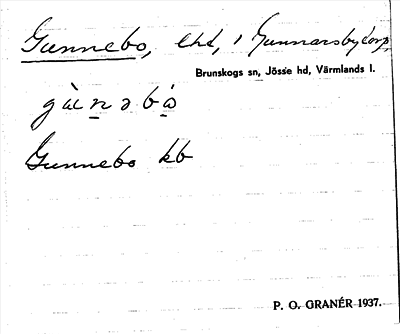 Gunnebo, lht, i Gunnarsbytorp,
Brunskogs sn, Jösse hd, Värmlands l.
gùnəbò
Gunnebo kb
P. O. GRANÉR 1937.